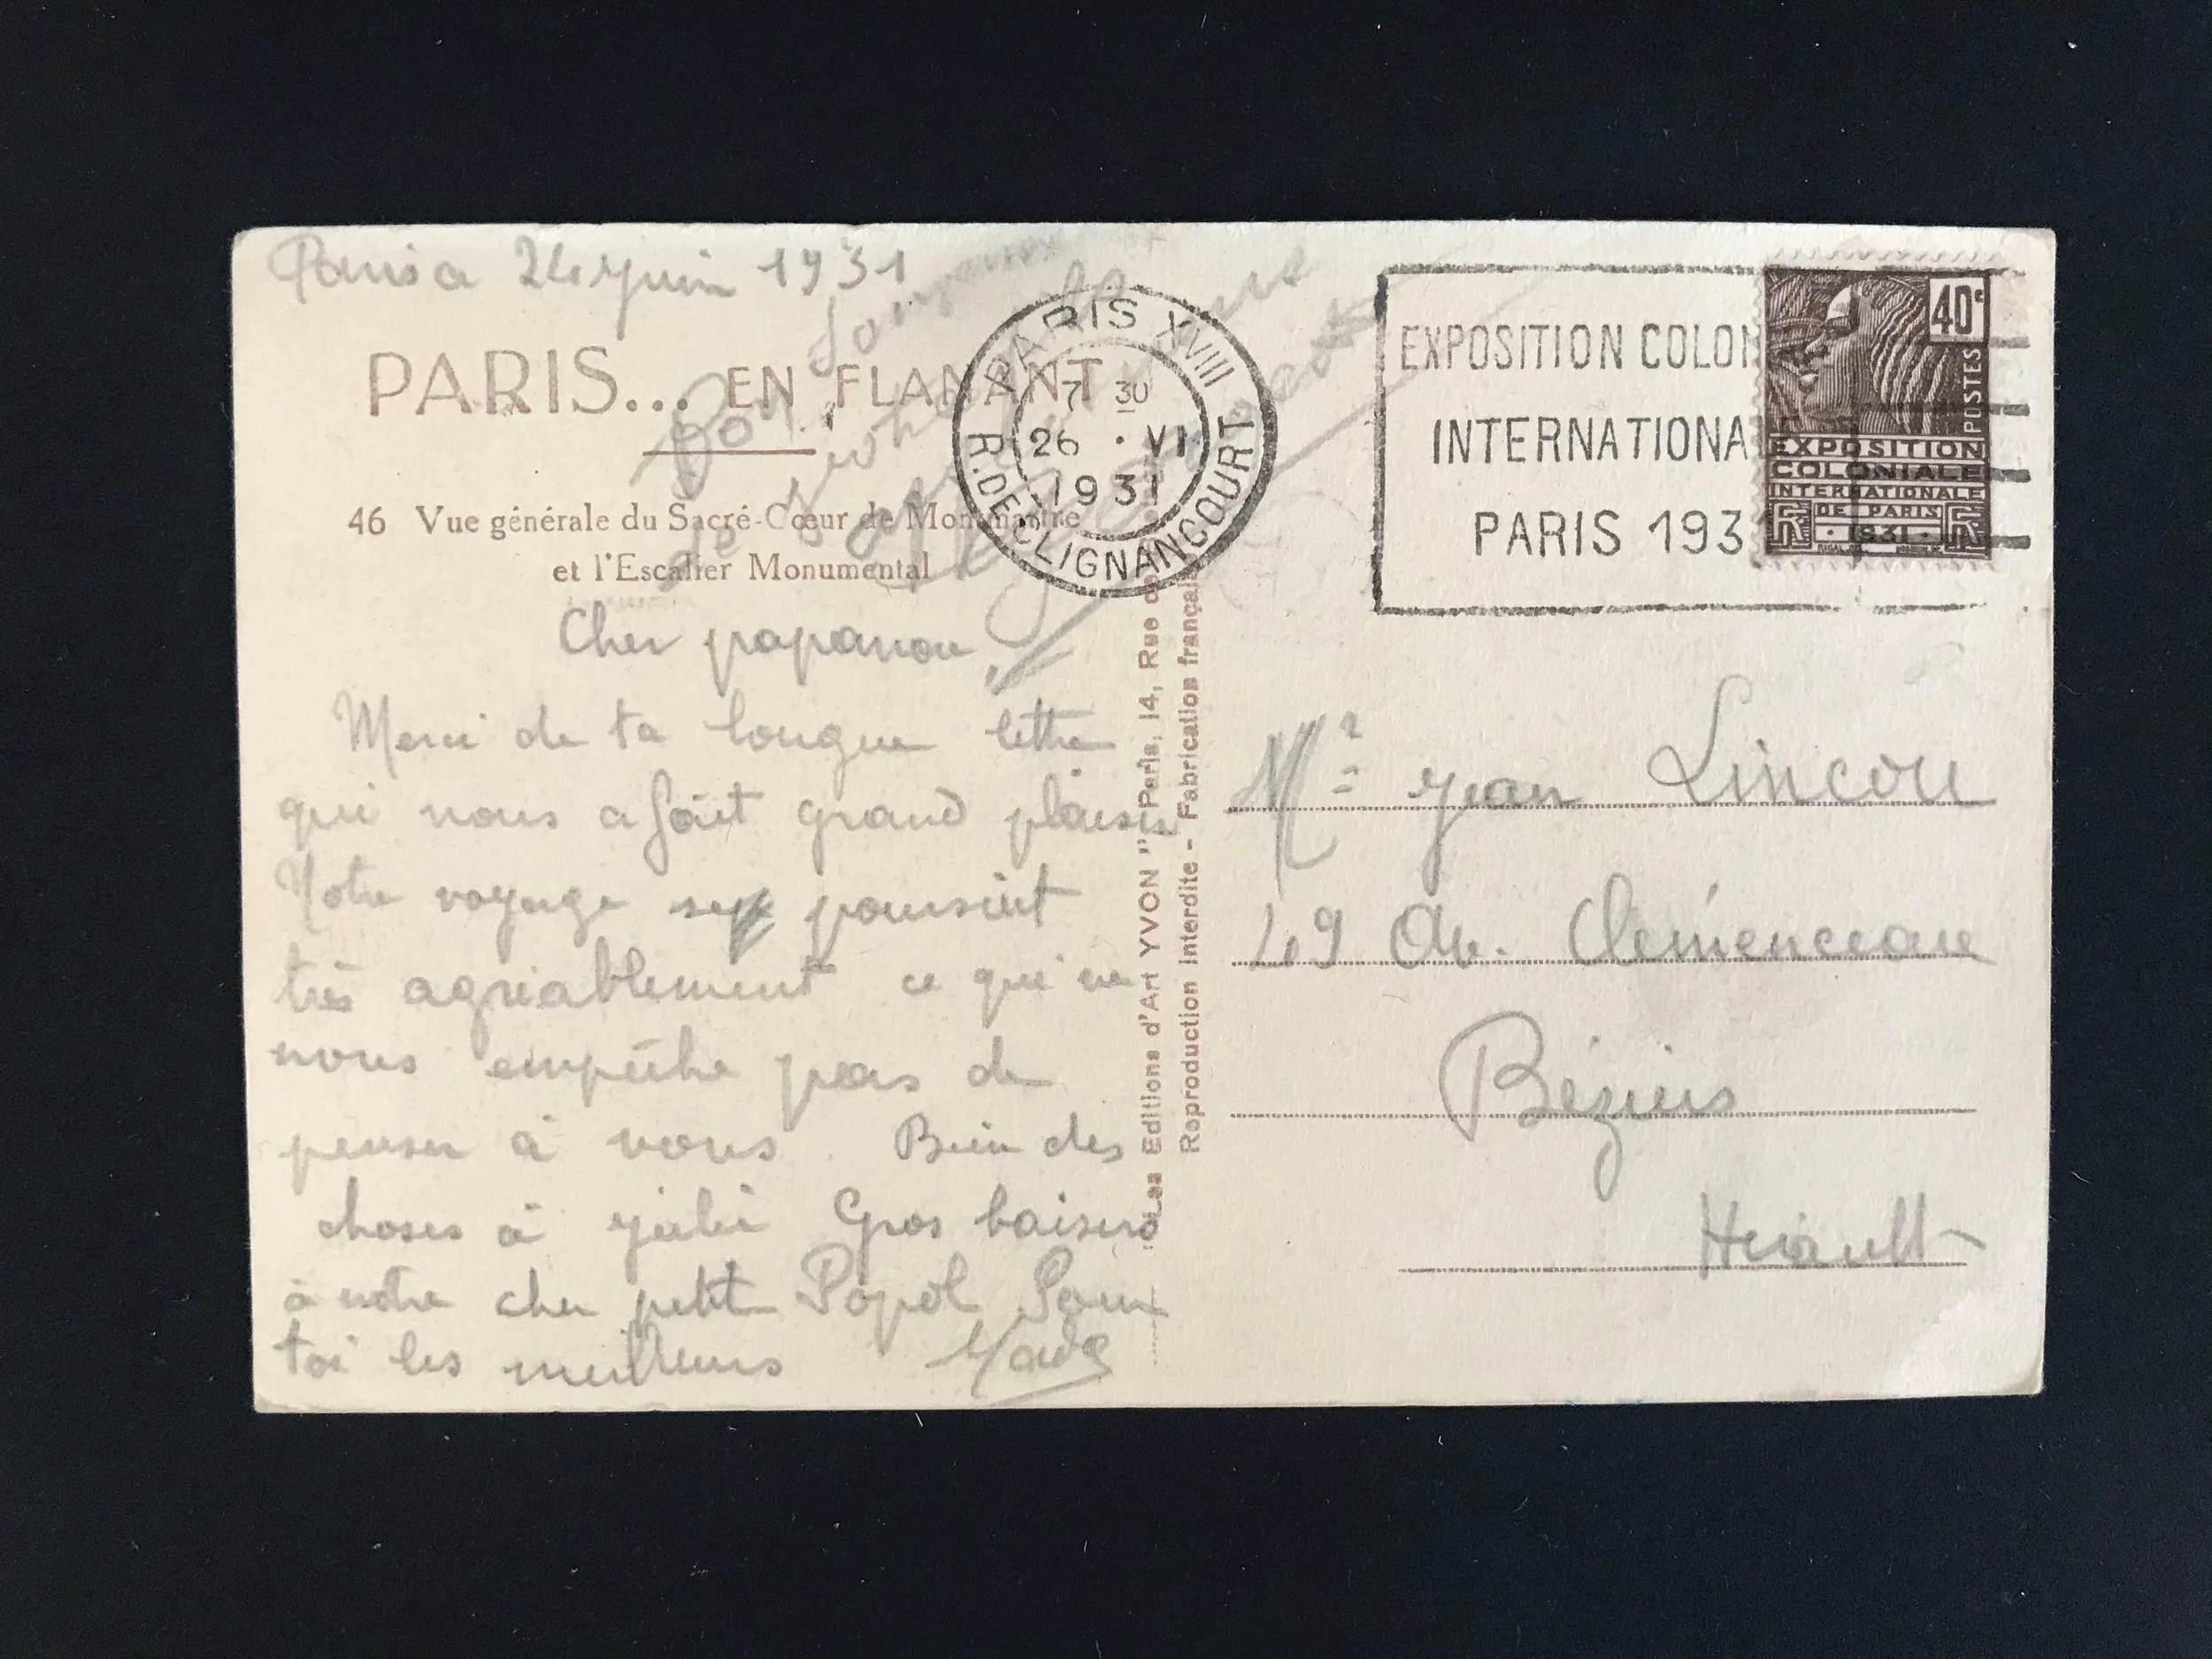 Paris a 24 juin 1931
PARIS... EN FLANANT
46 Vue générale du Sacré-Cœur de Montmartre
et l'Escalier Monumental
Cher papanou
Merci de ta longue lettre
qui nous a fait grand plaisir
Notre voyage se poursuit
très agréablement ce qui ne
nous empêche pas de
penser à vous. Bien des
choses à Julie Gros baisers
à notre cher petit Popol Pour
toi les meilleurs
PARIS XVIII
7 30
26 · VI
1931
R. DE CLIGNANCOURT
Les Editions d'Art YVON " Paris, 14, Rue
Reproduction Interdite - Fabrication française
EXPOSITION COLON
INTERNATIONA
PARIS 193
40c
POSTES
EXPOSITION
COLONIALE
INTERNATIONALE
DE PARIS
· 1931 ·
Jean Lincou
49 Av. Clémenceau
Béziers
Hérault